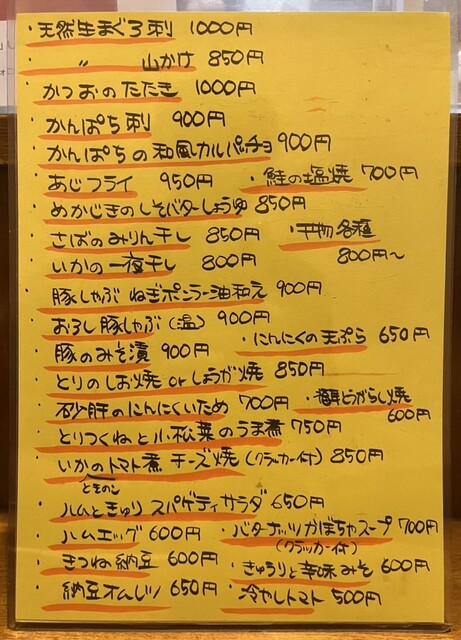 ・天然生まぐろ刺 1000円
・　〃　山かけ 850円
・かつおのたたき 1000円
・かんぱち刺 900円
・かんぱちの和風カルパッチョ 900円
・あじフライ 950円 ・鮭の塩焼 700円
・めかじきのしそバターしょうゆ 850円
・さばのみりん干し 850円 ・干物各種
・いかの一夜干し 800円 800円〜
・豚しゃぶ ねぎポンラー油和え 900円
・おろし豚しゃぶ（温） 900円
・豚のみそ漬 900円 ・にんにくの天ぷら 650円
・とりのしお焼 or しょうが焼 850円
・砂肝のにんにくいため 700円 ・とうがらし焼
600円
・とりつくねと小松菜のうま煮 750円
・いかのトマト煮 チーズ焼（クラッカー付） 850円
ときのこ
・ハムときゅり スパゲティサラダ 650円
・ハムエッグ 600円 ・バターナッツかぼちゃスープ 700円
（クラッカー付）
・きつね納豆 600円 ・きゅうりと辛味みそ 600円
・納豆オムレツ 650円 ・冷やしトマト 500円